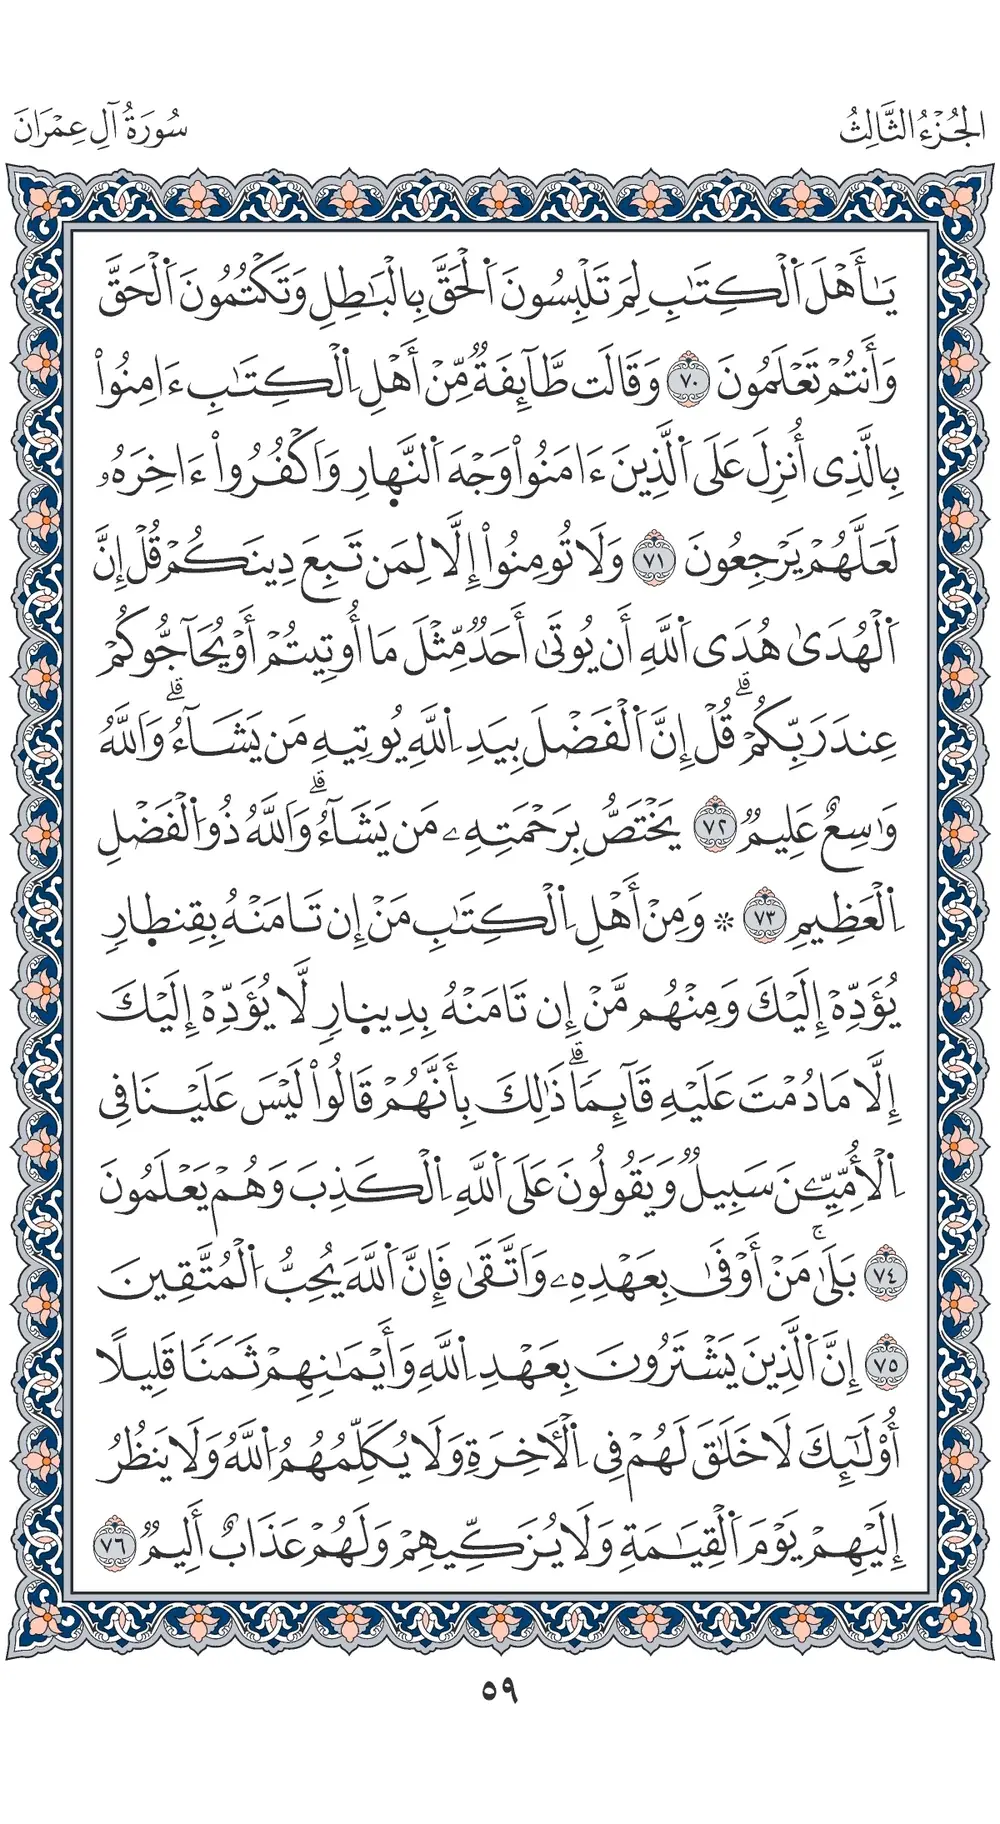 الجُزْءُ الثَّالِثُ
سُورَةُ آلِ عِمْرَانَ
يَٰٓأَهْلَ اَ۬لْكِتَٰبِ لِمَ تَلْبِسُونَ اَ۬لْحَقَّ بِالْبَٰطِلِ وَتَكْتُمُونَ اَ۬لْحَقَّ
وَأَنتُمْ تَعْلَمُونَ ٧٠ وَقَالَت طَّآئِفَةٌ مِّنْ أَهْلِ اِ۬لْكِتَٰبِ ءَامِنُواْ
بِالَّذِى أُنزِلَ عَلَى اَ۬لَّذِينَ ءَامَنُواْ وَجْهَ اَ۬لنَّهارِ وَاَكْفُرُواْ ءَاخِرَهُۥ
لَعَلَّهُمْ يَرْجِعُونَ ٧١ وَلَا تُومِنُواْ إِلَّا لِمَن تَبِعَ دِينَكُمْ قُلْ إِنَّ
اَ۬لْهُدَىٰ هُدَى اَ۬للَّهِ أَن يُوتَىٰ أَحَدٌ مِّثْلَ مَا أُوتِيتُمْ أَوْ يُحَآجُّوكُمْ
عِندَ رَبِّكُمْۗ قُلْ إِنَّ اَ۬لْفَضْلَ بِيَدِ اِ۬للَّهِ يُوتِيهِ مَن يَشَآءُۗ وَاَللَّهُ
وَٰسِعٌ عَلِيمٌ ٧٢ يَخْتَصُّ بِرَحْمَتِهِۦ مَن يَشَآءُۗ وَاَللَّهُ ذُو اُ۬لْفَضْلِ
اِ۬لْعَظِيمِ ٧٣ ۞ وَمِنْ أَهْلِ اِ۬لْكِتَٰبِ مَنْ إِن تَامَنْهُ بِقِنطِارِ
يُؤَدِّهْ إِلَيْكَ وَمِنْهُم مَّنْ إِن تَامَنْهُ بِدِينِارِ لَّا يُؤَدِّهْ إِلَيْكَ
إِلَّا مَا دُمْتَ عَلَيْهِ قَآئِمَاۗ ذَٰلِكَ بِأَنَّهُمْ قَالُواْ لَيْسَ عَلَيْنَا فِى
اِ۬لْأُمِّيِّـۧنَ سَبِيلٌ وَيَقُولُونَ عَلَى اَ۬للَّهِ اِ۬لْكَذِبَ وَهُمْ يَعْلَمُونَ
٧٤ بَلَىٰۚ مَنْ أَوْفَىٰ بِعَهْدِهِۦ وَاَتَّقَىٰ فَإِنَّ اَ۬للَّهَ يُحِبُّ اُ۬لْمُتَّقِينَ
٧٥ إِنَّ اَ۬لَّذِينَ يَشْتَرُونَ بِعَهْدِ اِ۬للَّهِ وَأَيْمَٰنِهِمْ ثَمَنَا قَلِيلًا
أُوْلَٰٓئِكَ لَا خَلَٰقَ لَهُمْ فِى اِ۬لْأٓخِرَةِ وَلَا يُكَلِّمُهُمُ اُ۬للَّهُ وَلَا يَنظُرُ
إِلَيْهِمْ يَوْمَ اَ۬لْقِيَٰمَةِ وَلَا يُزَكِّيهِمْ وَلَهُمْ عَذَابٌ أَلِيمٌ ٧٦
٥٩